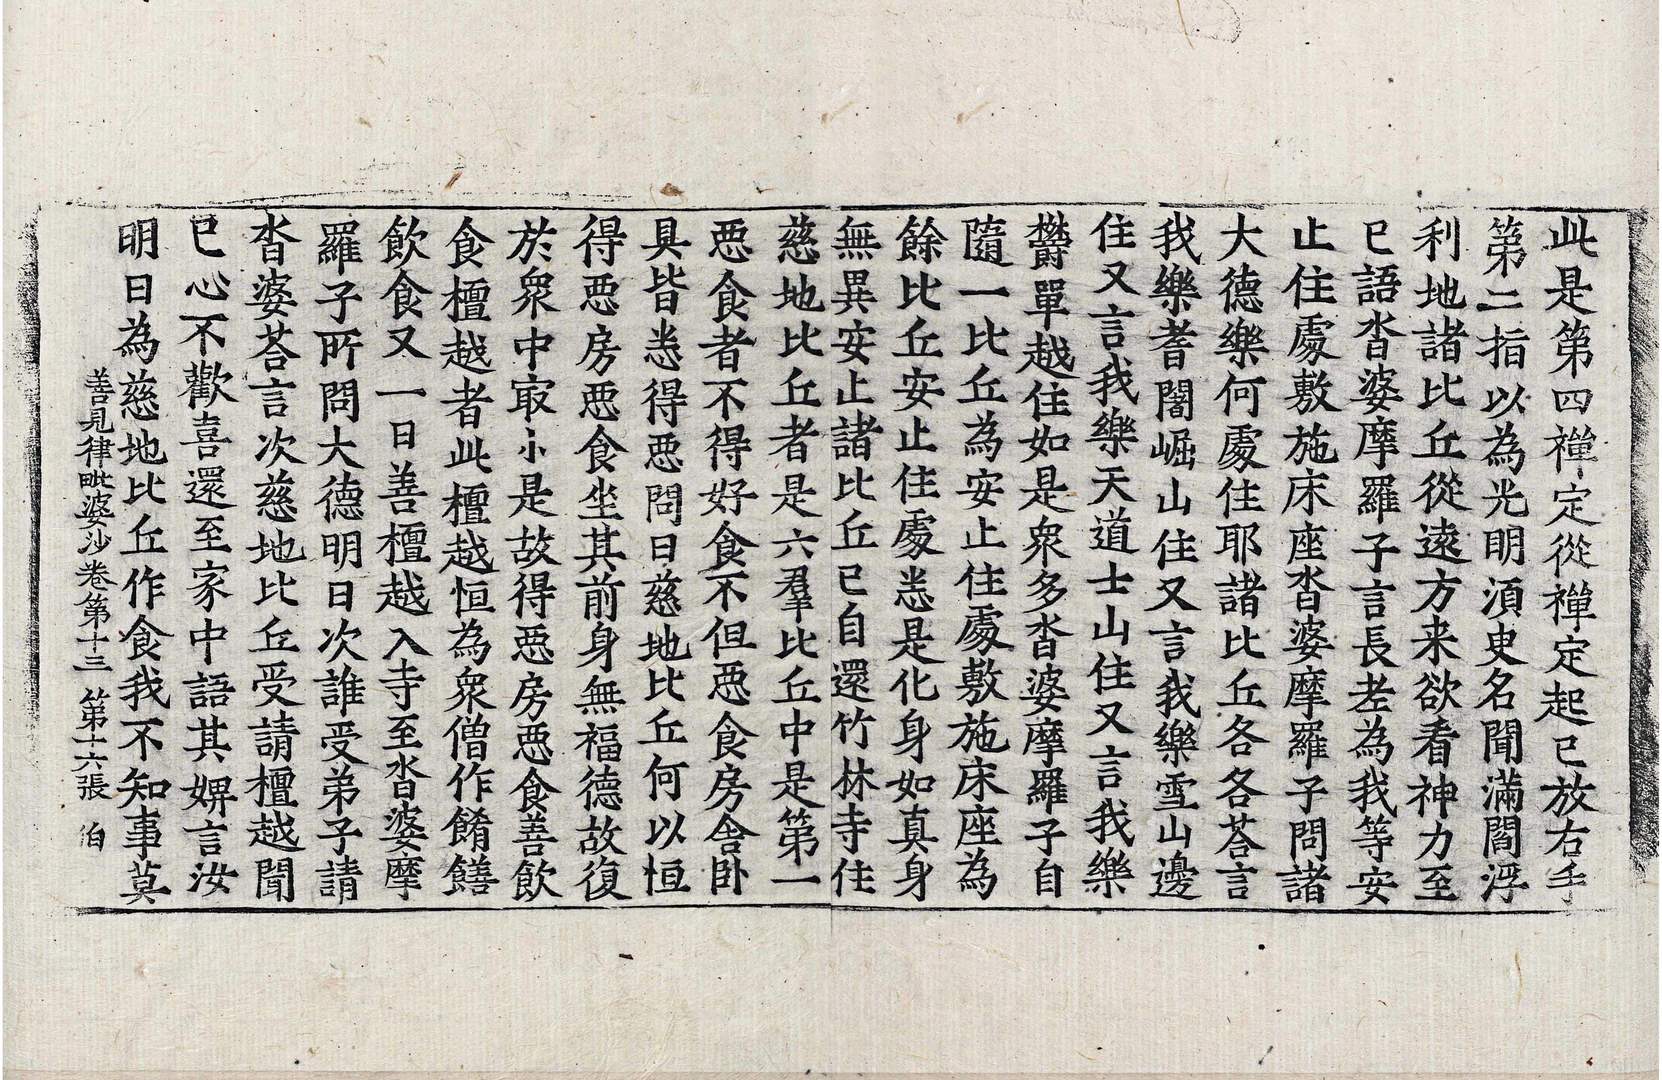 此是第四禪定從禪定起已放右手
第二指以為光明湏臾名聞滿閻浮
利地諸比丘從遠方来欲看神力至
已語沓婆摩羅子言長老為我等安
止住處敷施床座沓婆摩羅子問諸
大德樂何處住耶諸比丘各各荅言
我樂耆闍崛山住又言我樂雪山邊
住又言我樂天道士山住又言我樂
欝單越住如是衆多沓婆摩羅子自
隨一比丘為安止住處敷施床座為
餘比丘安止住處悉是化身如真身
無異安止諸比丘已自還竹林寺住
慈地比丘者是六羣比丘中是第一
惡食者不得好食不但惡食房舍卧
具皆悉得惡問曰慈地比丘何以恒
得惡房惡食坐其前身無福德故復
於衆中㝡小是故得惡房惡食善飲
食檀越者此檀越恒為衆僧作餚饍
飲食又一日善檀越入寺至沓婆摩
羅子所問大德明日次誰受弟子請
沓婆荅言次慈地比丘受請檀越聞
已心不歡喜還至家中語其婢言汝
明日為慈地比丘作食我不知事莫
善見律毗婆沙卷第十三 第十六張 伯